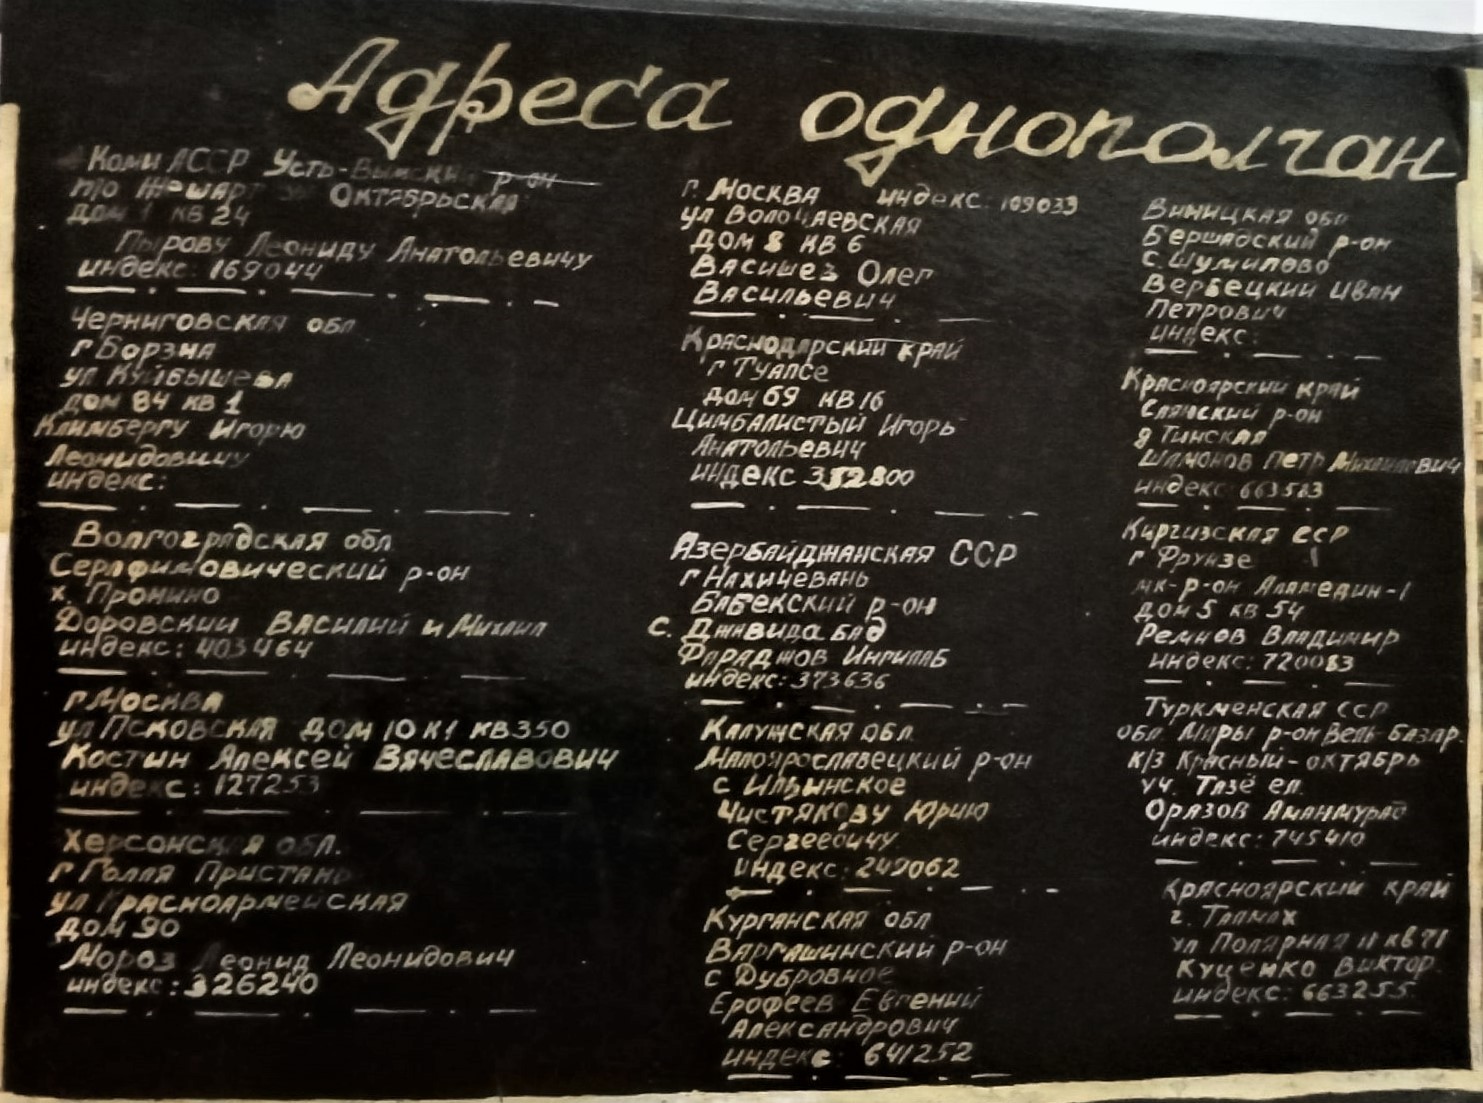 Адреса однополчан
Коми АССР Усть-Вымский р-он
п/о Жешарт ул Октябрьская
дом 1 кв 24
Пырову Леониду Анатольевичу
индекс: 169044
Черниговская обл
г Борзна
ул Куйбышева
дом 84 кв 1
Климбергу Игорю
Леонидовичу
индекс:
Волгоградская обл
Серафимовический р-он
х. Пронино
Доровский Василий и Михаил
индекс: 403464
г. Москва
ул Псковская дом 10 к1 кв 350
Костин Алексей Вячеславович
индекс: 127253
Херсонская обл.
г Голая Пристань
ул Красноармейская
дом 90
Мороз Леонид Леонидович
индекс: 326240
г. Москва индекс: 109033
ул Волочаевская
дом 8 кв 6
Олег
Васильевич
Краснодарский край
г Туапсе
дом 69 кв 16
Цимбалистый Игорь
Анатольевич
индекс 352800
Азербайджанская ССР
г Нахичевань
Бабекский р-он
с. Джавидабад
Фараджов Ингилаб
индекс: 373636
Калужская обл.
Малоярославецкий р-он
с Ильинское
Чистякову Юрию
Сергеевичу
индекс: 249062
Курганская обл
Варгашинский р-он
с Дубровное
Ерофеев Евгений
Александрович
индекс: 641252
Виницкая обл
Бершадский р-он
с. Шумилово
Вербецкий Иван
Петрович
индекс:
Красноярский край
р-он
Тинская
Петр Михайлович
индекс: 663583
Киргизская ССР
г Фрунзе
мк-р-он Аламедин-1
дом 5 кв 54
Ремнов Владимир
индекс: 720083
Туркменская ССР
обл. Мары р-он Векиль-Базар.
к/з Красный-октябрь
уч. Тазё ел.
Оразов Аманмурад
индекс: 745410
Красноярский край
г.
ул Полярная 11 кв 71
Куценко Виктор.
индекс: 663255.